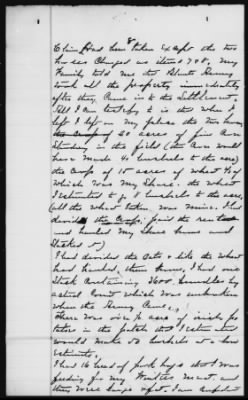 8
Claim has been taken except the two
horses charged as items 7 & 8, my
family told me the Union Army
took all the property immediately
after they came in to the settlement.
All I can testify to is this when I
left I left on my place the two horses
the crop of 20 acres of fine corn
standing in the field (the corn would
have made 40 bushels to the acre)
the crop of 15 acres of wheat
which was my share. the wheat
I estimated to bushels to the acre,
(all the wheat taken was mine. I had
divided the crop. paid the rent
and hauled my share home and
stacked it)
I had divided the oats & like the wheat
had hauled them home, I had one
stack containing 3600 bundles by
actual count which was unbroken
when the Army came,
There was over ½ acre of irish po-
tatoes in the patch that I estimated
would make 50 bushels at a low
estimate,
I had 16 head of pork hogs that I was
feeding for my winter meat, and
they were large. I am